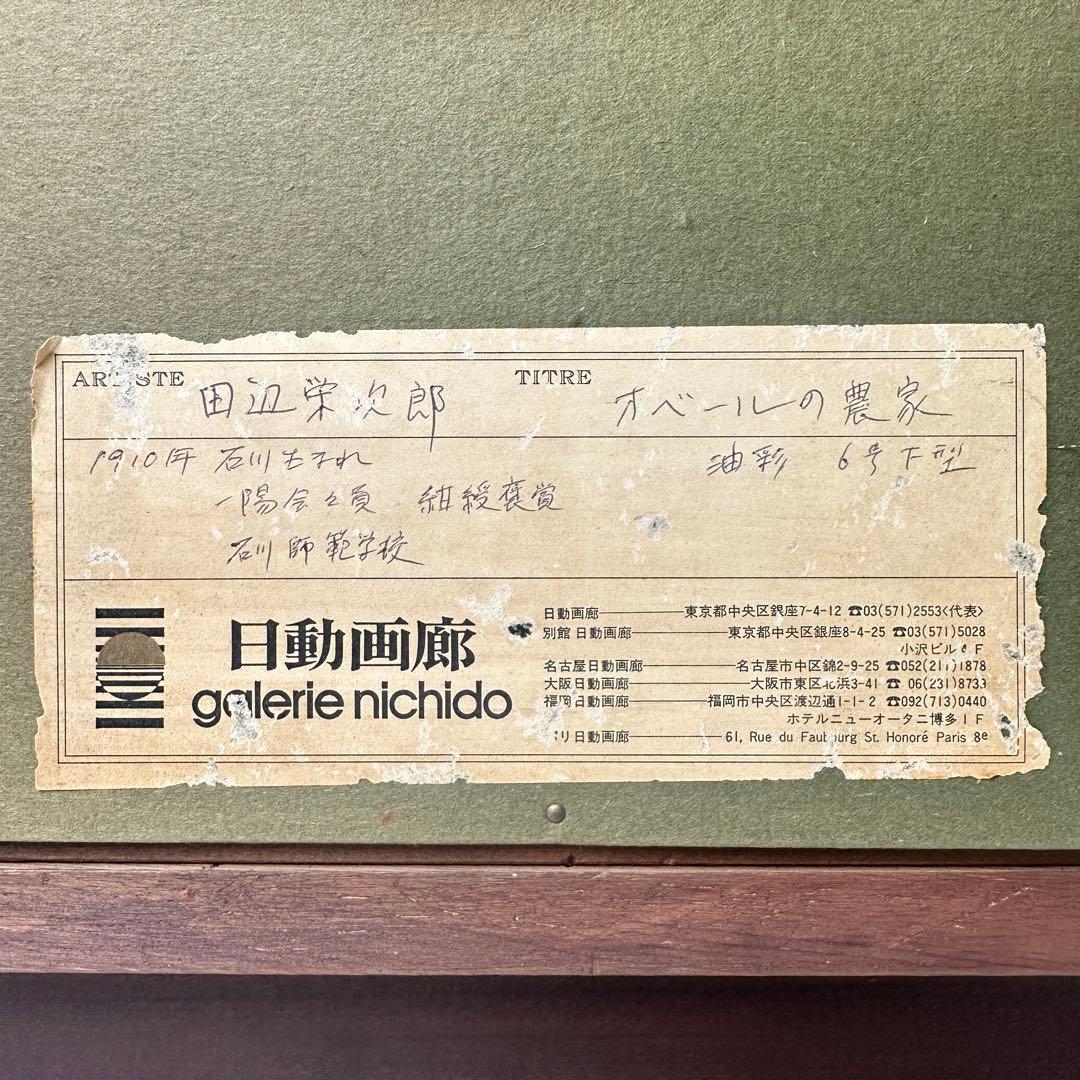 ARTISTE 田辺栄次郎 TITRE オベールの農家
1910年 石川生まれ 油彩 6号F型
一陽会々員 紺綬褒賞
石川師範学校
日動画廊
galerie nichido
日動画廊 東京都中央区銀座7-4-12 ☎03(571)2553<代表>
別館 日動画廊 東京都中央区銀座8-4-25 ☎03(571)5028
小沢ビル4F
名古屋日動画廊 名古屋市中区錦2-9-25 ☎052(211)1878
大阪日動画廊 大阪市東区北浜3-41 ☎ 06(231)8733
福岡日動画廊 福岡市中央区渡辺通1-1-2 ☎092(713)0440
ホテルニューオータニ博多1F
パリ日動画廊 61, Rue du Faubourg St. Honoré Paris 8e